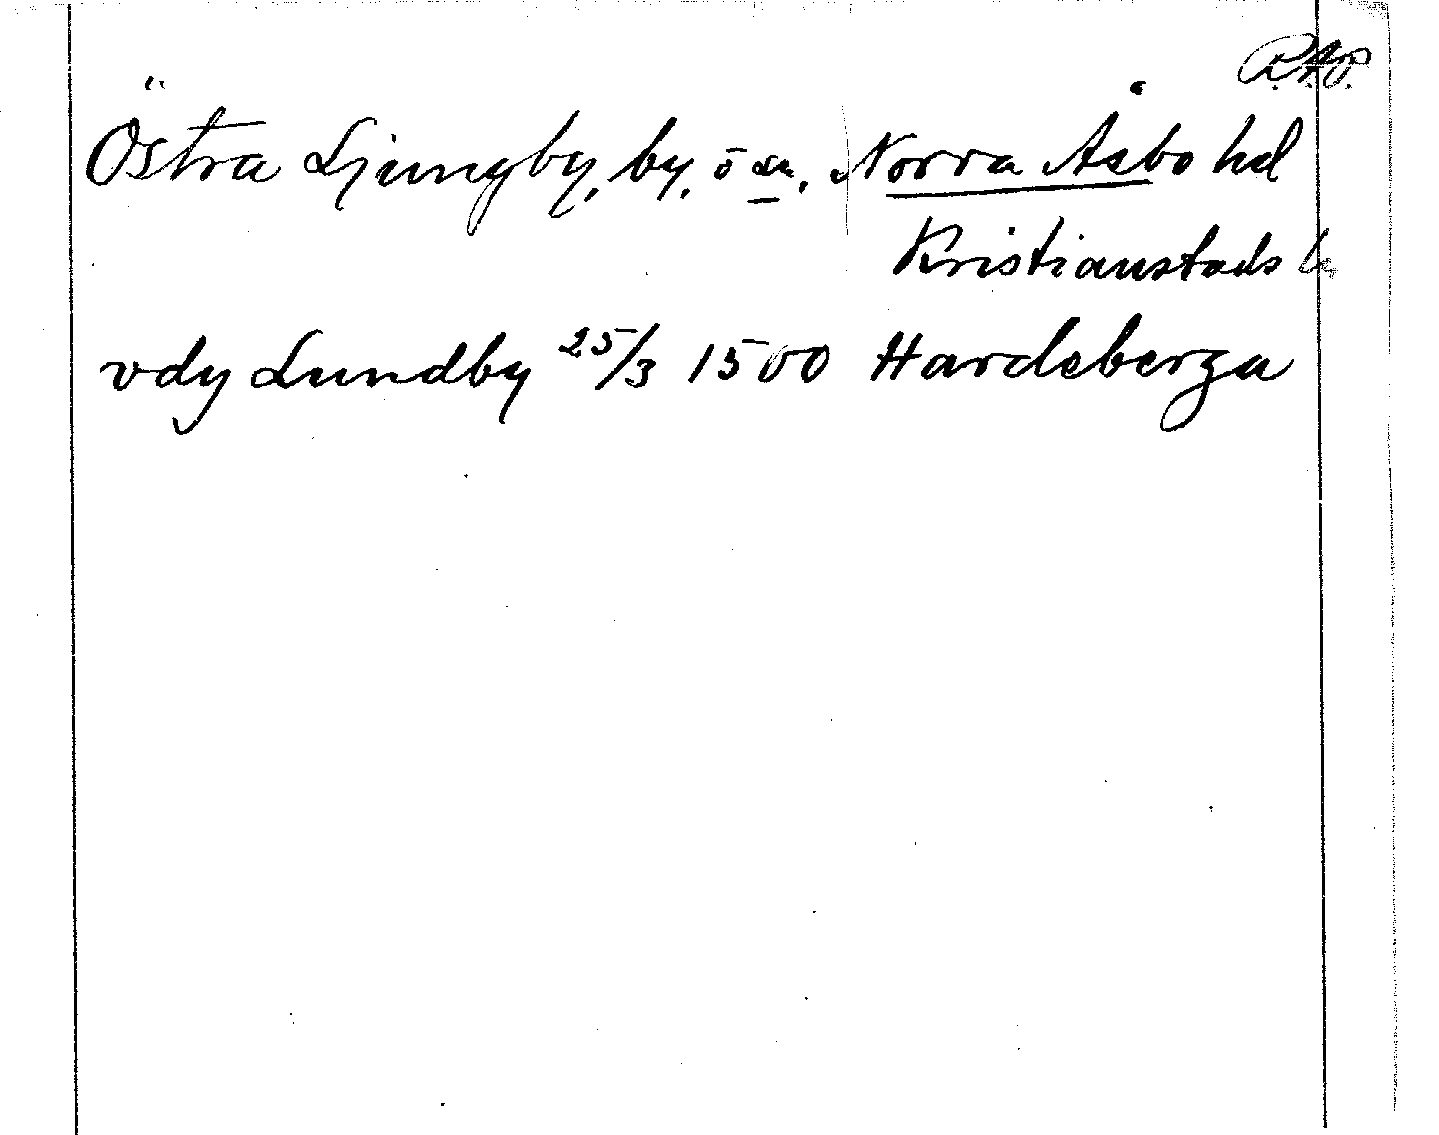 R.A.P.
Östra Ljungby, by, ö sn, Norra Åsbo hd
Kristianstads l.
vdy Lundby 25/3 1500 Hardeberga